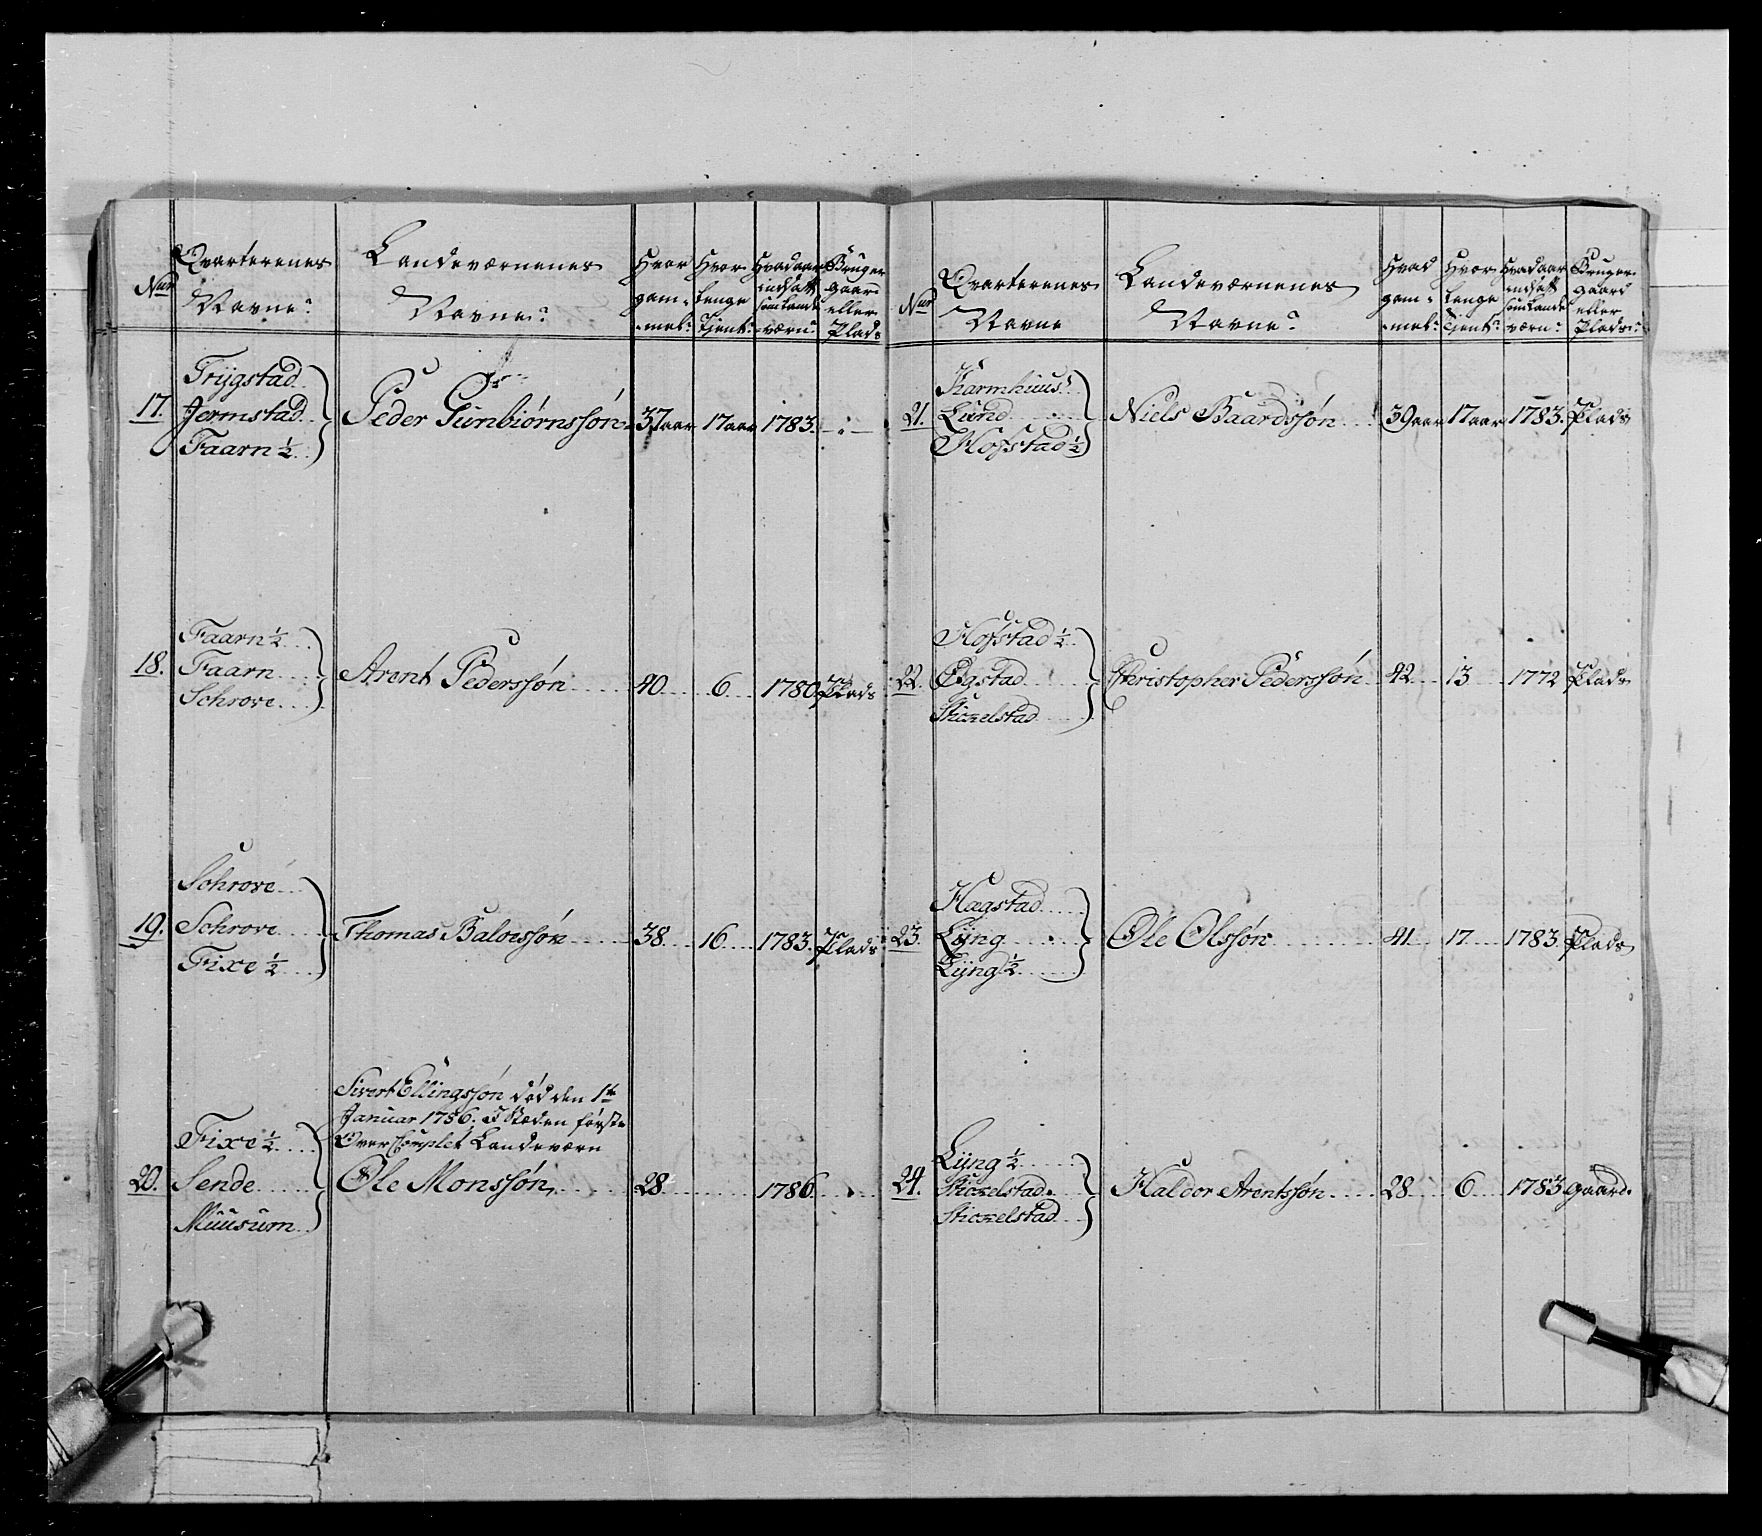 Nur
Qvarterenes
Navne:
Landeværnenes
Navne:
Hvor
gam=
=mel:
Hvor
lenge
Tient:
Hvad aar
indsatt
som Lande
=værn:
Bruger
gaard
eller
Plads
17.
Trÿgstad
Jermstad
Faarn ½
Peder Gunbiørnssøn
37 aar
17 aar
1783.
18.
Faarn ½
Faarn
Schrove
Arent Pederssøn
40
6
1780
Plads
19.
Schrove
Schrove
Fixe ½
Thomas Baloessøn
38
16
1783.
Plads
20.
Fixe ½
Sende
Muusum
Sivert Ellingssøn død den 1te
Januar 1786. I Stæden første
Over Complet Landeværn
Ole Monssøn,
28
1786.
Nur
Qvarterenes
Navne
Landeværnenes
Navne:
Hvad
gam=
=mel:
Hvor
lenge
Tient:
Hvad aar
indsatt
som Lande
værn:
Bruger
gaard
eller
Plads:
21.
Karmhuus
Lund
Hofstad ½
Niels Baardssøn
39 aar
17 aar
1783.
Plads
22.
Hofstad ½
Øgstad
Stichelstad
Christopher Pederssøn
42
13
1772
Plads
23.
Hægstad
Lÿng
Lÿng ½
Ole Olssøn
41
17
1783.
Plads
24.
Lÿng ½
Stichelstad
Stichelstad
Haldor Arentssøn
28
6
1783
gaard.